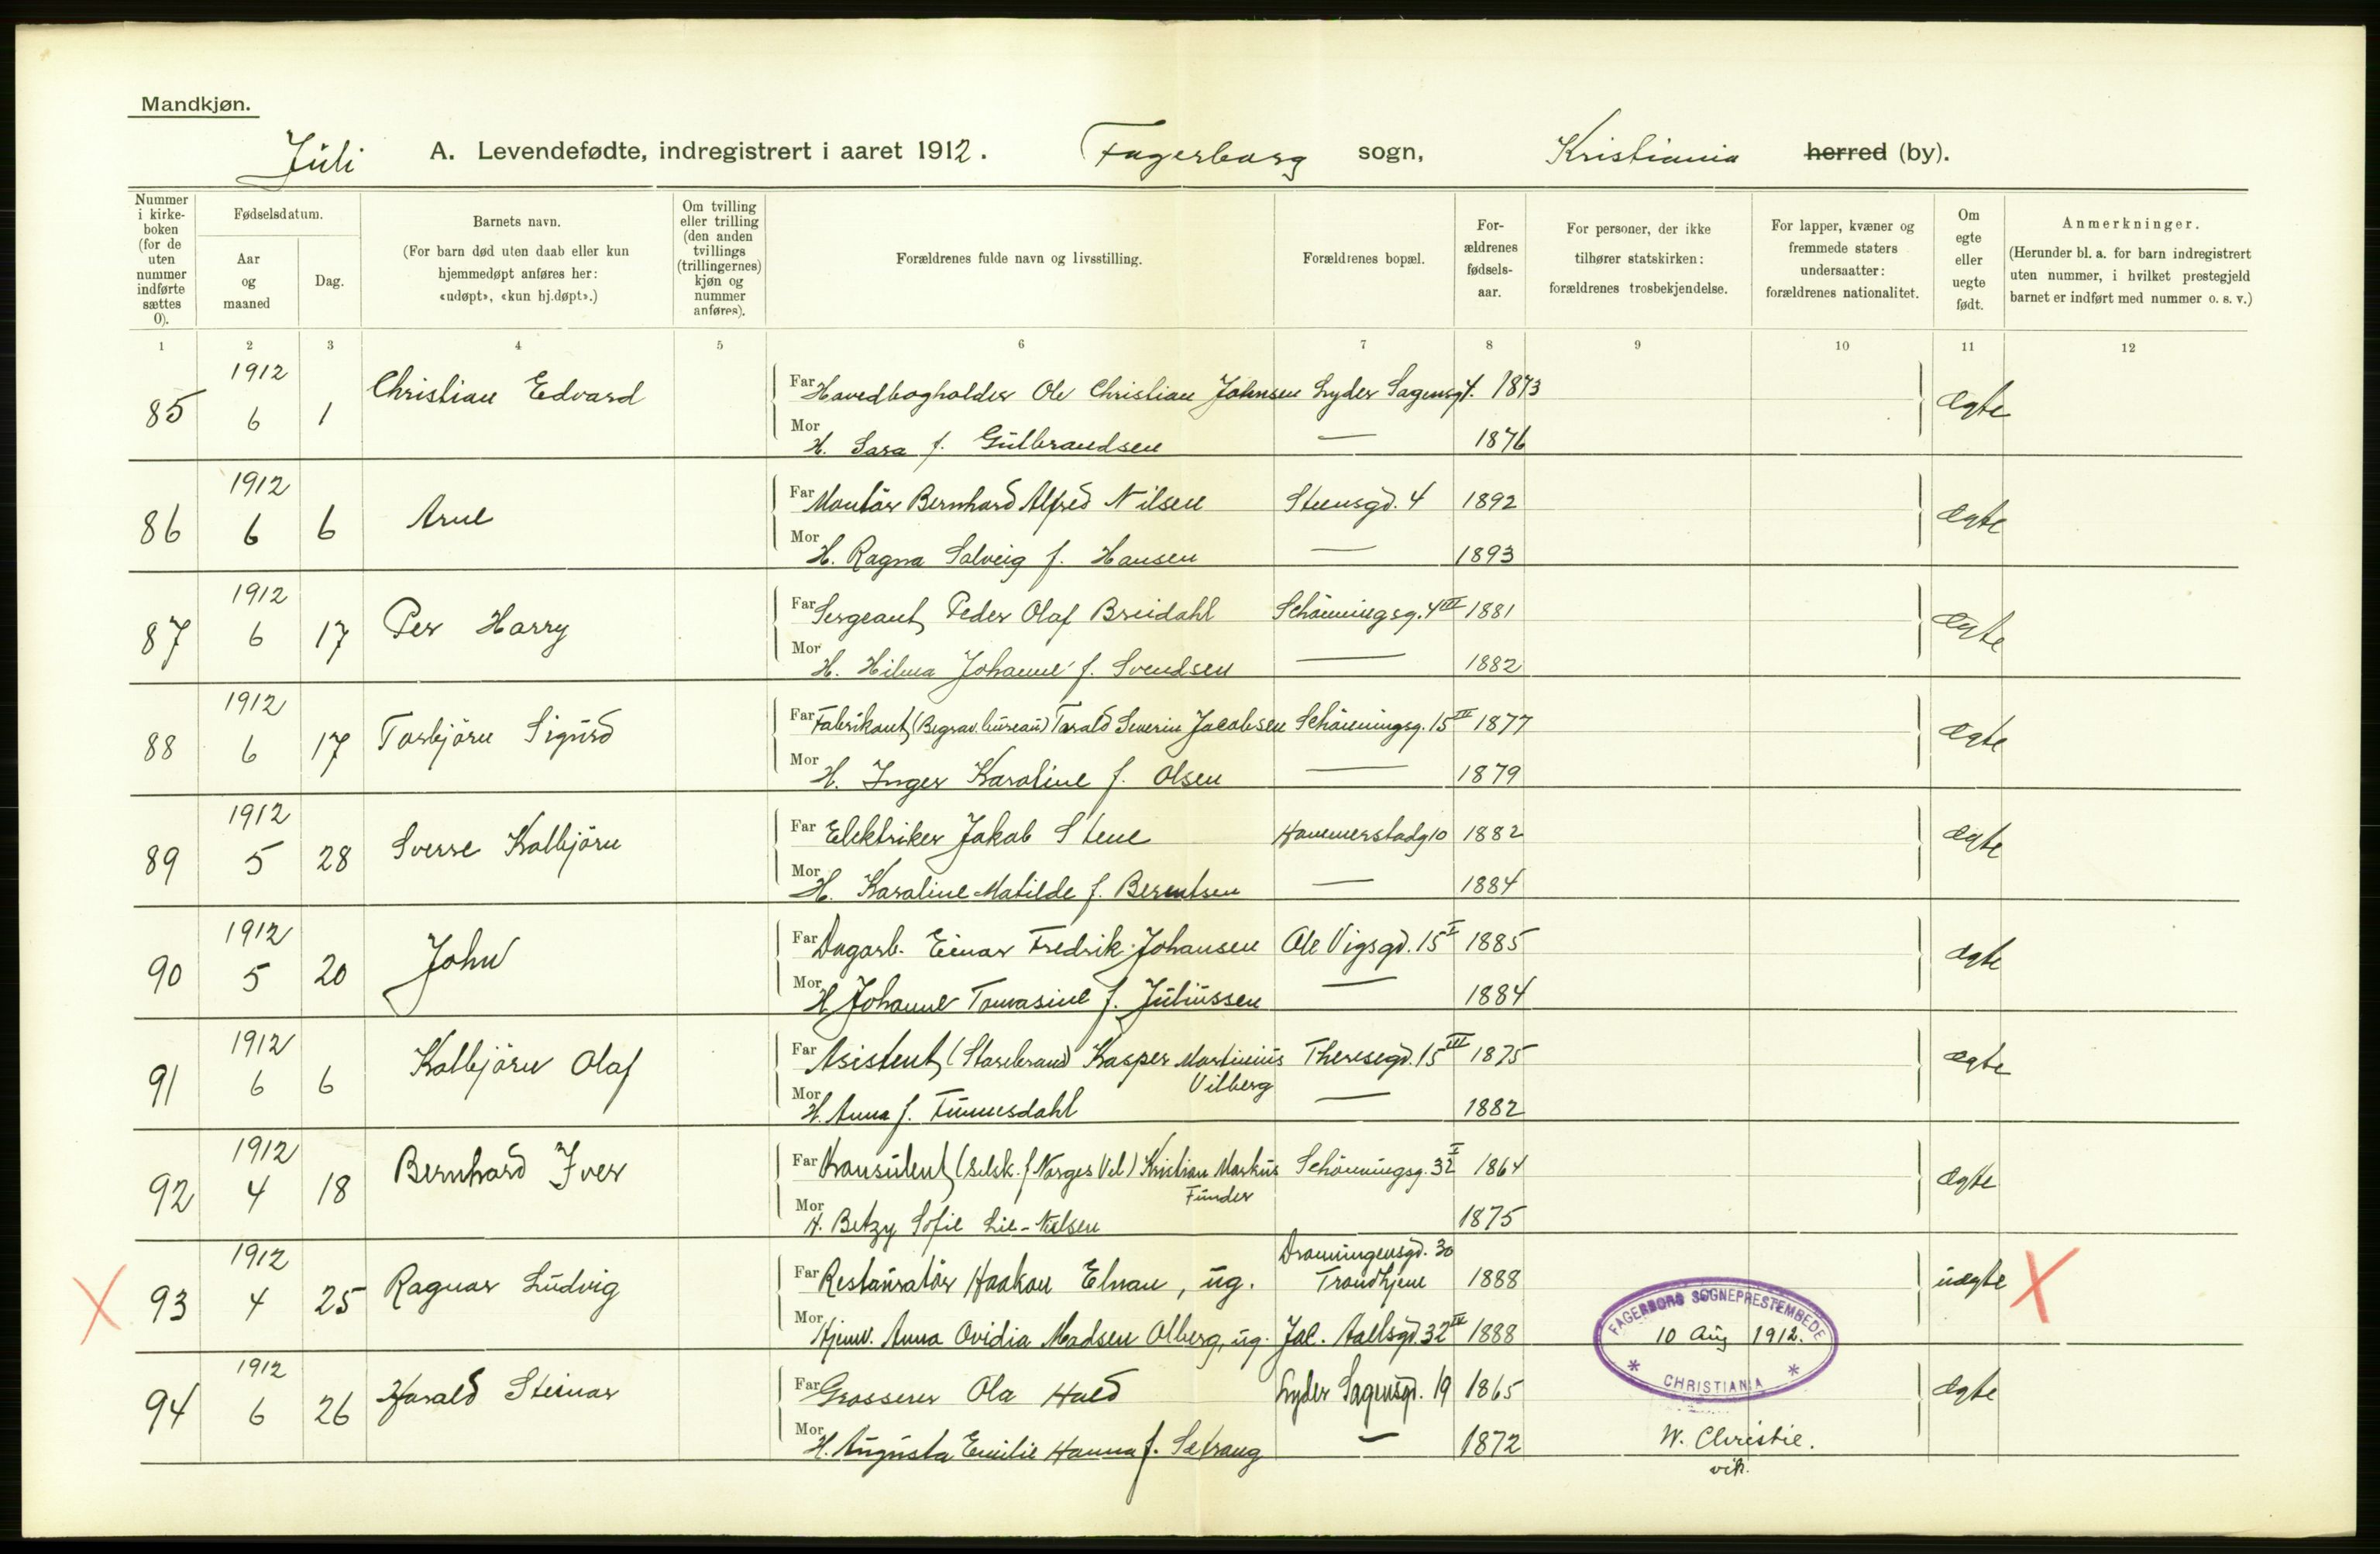 Mandkjøn.
Juli A. Levendefødte, indregistrert i aaret 1912. Fagerborg sogn, Kristiania herred (by).
Nummer i kirke-boken (for de uten nummer indførte sættes 0).
Fødselsdatum.
Aar og maaned
Dag.
Barnets navn.
(For barn død uten daab eller kun hjemmedøpt anføres her: «udøpt», «kun hj.døpt».)
Om tvilling eller trilling (den anden tvillings (trillingernes) kjøn og nummer anføres).
Forældrenes fulde navn og livsstilling.
Forældrenes bopæl.
For-ældrenes fødsels-aar.
For personer, der ikke tilhører statskirken: forældrenes trosbekjendelse.
For lapper, kvæner og fremmede staters undersaatter: forældrenes nationalitet.
Om egte eller uegte født.
Anmerkninger.
(Herunder bl. a. for barn indregistrert uten nummer, i hvilket prestegjeld barnet er indført med nummer o. s. v.)
1 2 3 4 5 6 7 8 9 10 11 12
85 1912 6 1 Christian Edvard Far Hovedbogholder Ole Christian Johnsen Lyder Sagensg. 4. 1873 ægte
Mor H. Sara f. Gulbrandsen — 1876
86 1912 6 6 Arne Far Montør Bernhard Alfred Nilsen Steensgd. 4 1892 ægte
Mor H. Ragna Solveig f. Hansen — 1893
87 1912 6 17 Per Harry Far Sergeant Peder Olaf Breidahl Schönningsg. 4 III 1881 ægte
Mor H. Hilma Johanne f. Svendsen — 1882
88 1912 6 17 Torbjörn Sigurd Far Fabrikant (Begrav.bureau) Tarald Severin Jacobsen Schönningsg. 15 III 1877 ægte
Mor H. Inger Karoline f. Olsen — 1879
89 1912 5 28 Sverre Kolbjörn Far Elektriker Jakob Stene Hammerstadg 10 1882 ægte
Mor H. Karoline Matilde f. Berentsen — 1884
90 1912 5 20 John Far Dagarb. Einar Fredrik Johansen Ole Vigsgd. 15 I 1885 ægte
Mor H. Johanne Tomasine f. Juliussen — 1884
91 1912 6 6 Kolbjörn Olaf Far Asistent (Storebrand) Kasper Martinius Vilberg Theresegd. 15 III 1875 ægte
Mor H. Anna f. Finnesdahl — 1882
92 1912 4 18 Bernhard Iver Far Konsulent (Selsk. f Norges Vel) Kristian Markus Funder Schönningsg. 32 I 1864 ægte
Mor H. Betzy Sofie Lie-Nielsen 1875
X 93 1912 4 25 Ragnar Ludvig Far Restauratör Haakon Elnan, ug. Dronningensgd. 30 Trondhjem 1888 uægte X
Mor Hjemv. Anna Ovidia Madsen Olberg, ug. Jac. Aallsgd. 32 IV 1888
FAGERBORG SOGNEPRESTEMBEDE
10 Aug 1912.
* CHRISTIANIA *
94 1912 6 26 Harald Steinar Far Grosserer Ola Hald Lyder Sagensgd. 19 1865 ægte
Mor H. Augusta Emilie Hanna f. Setrang — 1872
W. Christie.
vik.